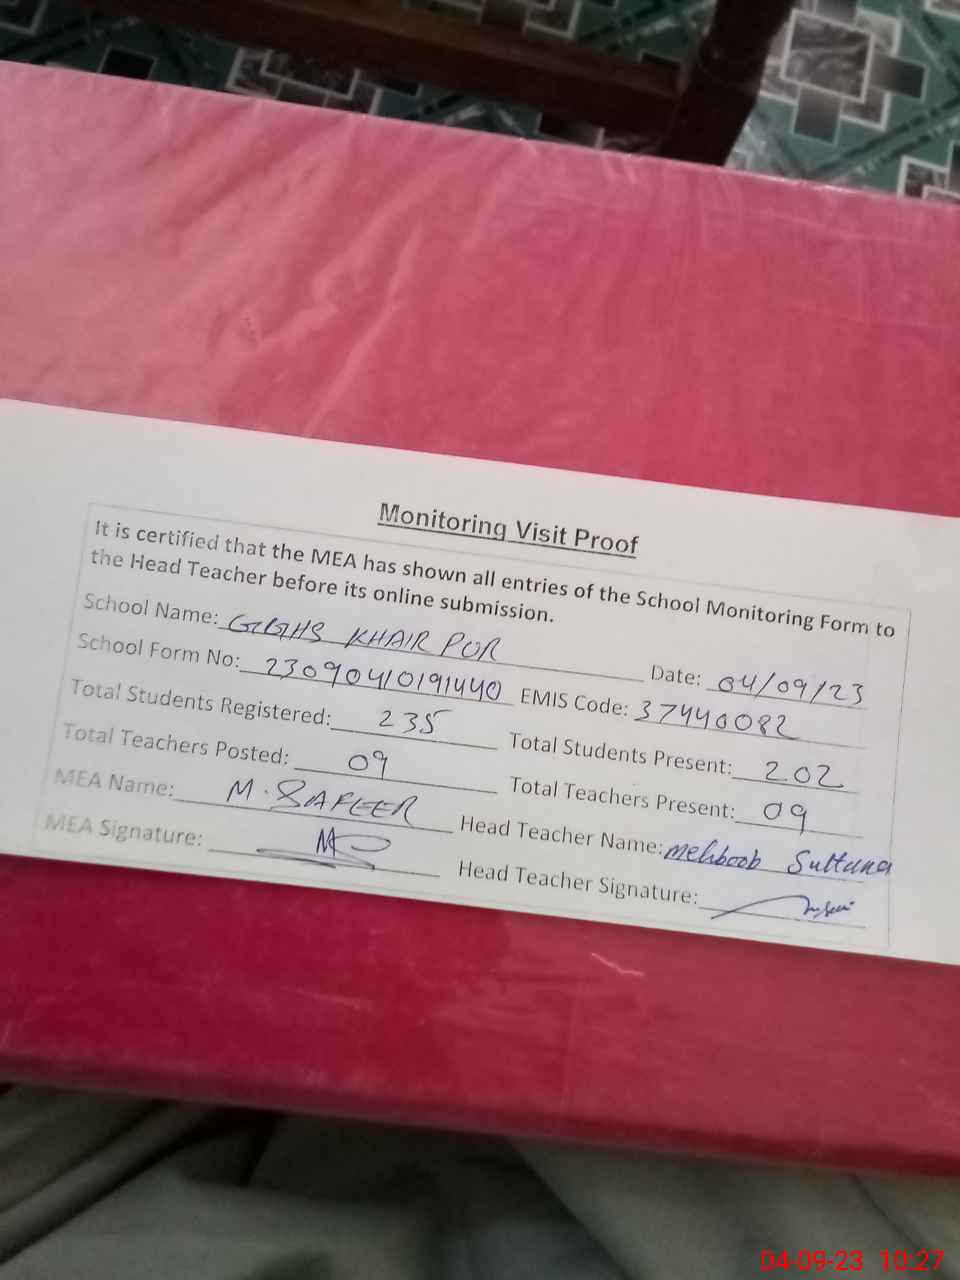 Monitoring Visit Proof
It is certified that the MEA has shown all entries of the School Monitoring Form to
the Head Teacher before its online submission.
School Name: GGHS KHAIR POR Date: 04/09/23
School Form No: 23090410191440 EMIS Code: 37440082
Total Students Registered: 235 Total Students Present: 202
Total Teachers Posted: 09 Total Teachers Present: 09
MEA Name: M. SAFEER Head Teacher Name: Mehboob Sultana
MEA Signature: Head Teacher Signature:
04-09-23 10:27